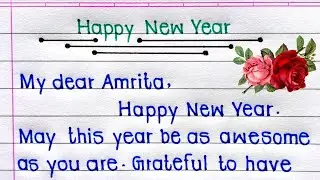 Happy New Year
My dear Amrita,
Happy New Year.
May this year be as awesome
as you are. Grateful to have